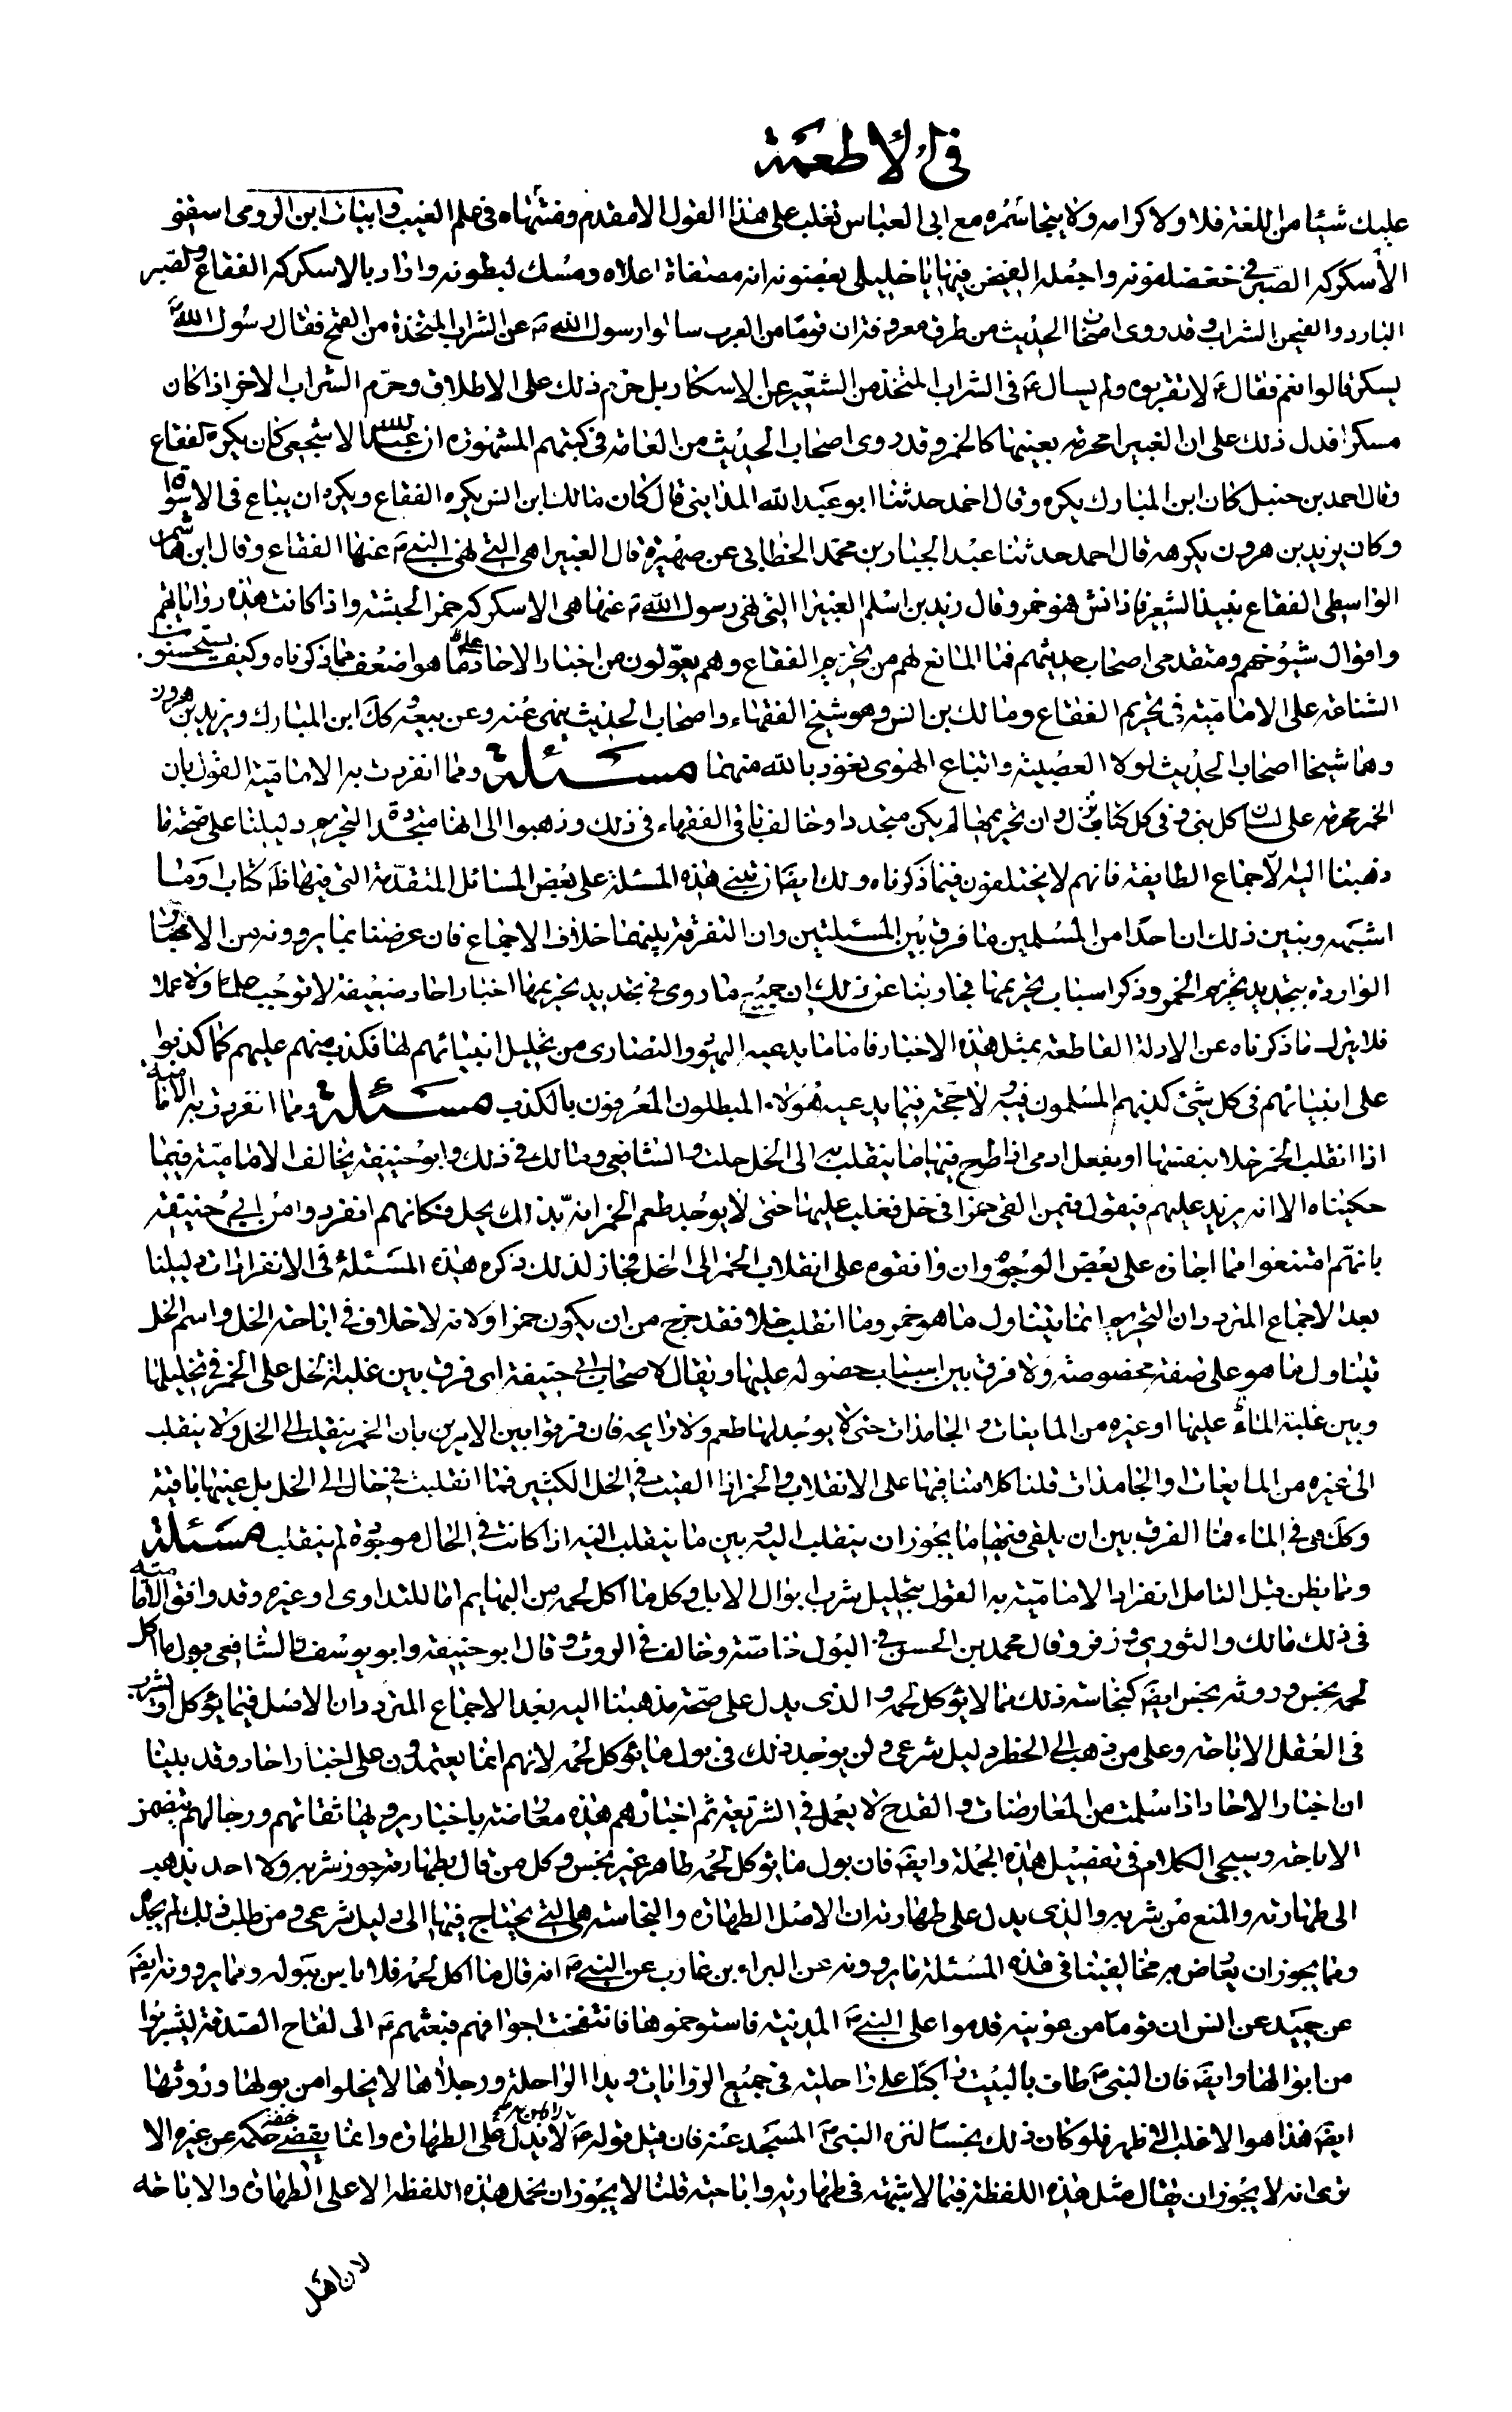 فى الأطعمة
عليك شيئا من اللغة فلا ولا كرامه ولا ينجا شمره مع ابى العباس تغلب على هذا القول الا مقدم وفتهاه فى علم الغيب وابيات ابن الرومى اسقنى
الأسكركه الصنبر فى خعضلفونه واجعل الفيض فيها يا خليلى بغصونه انه مصفاة اعلاه ومسك لبطونه واراد بالاسكركه الفقاع والصنبر
البارد والفيحن الشراب وقد روى اصحاب الحديث من طرق معروفة ان قوما من العرب سالوا رسول الله ص عن الشراب المتخذة من القمح فقال رسول الله ص
يسكر قالوا نعم فقال ع لا تقربوه ولم يسال ع فى الشراب المتخذ من الشعير عن الاسكار بل حرم ذلك على الاطلاق وحرم الشراب الاخر اذا كان
مسكرا فدل ذلك على ان الغبيرا محرمة بعينها كالخمر وقد روى اصحاب الحديث من العامة فى كتبهم المشهورة ان عبد الله الاشجعى كان يكره الفقاع
وقال احمد بن حنبل كان ابن المبارك يكره وقال احمد حدثنا ابو عبد الله المداينى قال كان مالك ابن انس يكره الفقاع ويكره ان يباع فى الاسواق
وكان يزيد بن هرون يكرهه قال احمد حدثنا عبد الجبار بن محمد الخطابى عن ضميرة قال الغبيرا هى التى نهى النبى ص عنها الفقاع وقال ابن هاشم
الواسطى الفقاع نبيذ الشعير فاذا نش فهو خمر وقال زيد بن اسلم الغبيرا التى نهى رسول الله ص عنها هى الاسكركه خمر الحبشة واذا كانت هذه رواياتهم
واقوال شيوخهم ومتقدمى اصحاب حديثهم فما المانع لهم من تحريم الفقاع وهم يعولون من اخبار الاحاد على ما هو اضعف مما ذكرناه وكيف يستحسنون
الشناعة على الامامية فى تحريم الفقاع ومالك بن انس وهو شيخ الفقهاء واصحاب الحديث ينهى عنه وعن بيعه وكذا ابن المبارك ويزيد بن هرون
وهما شيخا اصحاب الحديث لولا العصبية واتباع الهوى نعوذ بالله منهما مسئلة ومما انفردت به الامامية القول بان
الخمر محرمة على لسان كل نبى وفى كل كتاب نزل وان تحريمها لم يكن متجددا وخالف باقى الفقهاء فى ذلك وذهبوا الى انها متجددة التحريم دليلنا على صحة ما
ذهبنا اليه الاجماع الطايفة فانهم لا يختلفون فيما ذكرناه ولك ايضا ان تبنى هذه المسئلة على بعض المسائل المتقدمة التى فيها ظ كتاب وما
اشبهه ونبين ذلك ان احدا من المسلمين ما فرق بين المسئلتين وان التفرقة بينهما خلاف الاجماع فان عرضنا بما يروونه من الاخبار
الواردة بتجديد تحريم الخمر وذكر اسباب تحريمها فجاوبنا عن ذلك ان جميع ما روى فى تجديد تحريمها اخبار احاد ضعيفة لا توجب علما ولا عملا
فلا يترك ما ذكرناه عن الادلة القاطعة بمثل هذه الاخبار فاما ما يدعيه اليهود والنصارى من تحليل انبيائهم لها فكذب منهم عليهم كما كذبوا
على انبيائهم فى كل شئ كذبهم المسلمون فيه ولا حجة فيما يدعيه هؤلاء المبطلون المعروفون بالكذب مسئلة ومما انفردت به الامامية
اذا انقلب الخمر خلا بنفسها او بفعل ادمى اذا طرح فيها ما ينقلب به الى الخل حلت والشافعى ومالك فى ذلك وابو حنيفة يخالف الامامية فيما
حكيناه الا انه يزيد عليهم فيقول فيمن القى خمرا فى خل فغلب عليها حتى لا يوجد طعم الخمر انه بذلك يحل فكانهم انفردوا من ابى حنيفة
بانهم امتنعوا مما اجازه على بعض الوجوه وان وافقوه على انقلاب الخمر الى الخل فجاز لذلك ذكره هذه المسئلة فى الانفرادات دليلنا
بعد الاجماع المتردد ان التحريم انما يتناول ما هو خمر وما انقلب خلا فقد خرج من ان يكون خمرا ولانه لا خلاف فى اباحة الخل واسم الخل
يتناول ما هو على صفة مخصوصة ولا فرق بين اسباب حصوله عليها ويقال لاصحاب ابى حنيفة اى فرق بين غلبة الخل على الخمر فى تحليلها
وبين غلبة الماء عليها او غيره من المايعات والجامدات حتى لا يوجد لها طعم ولا رايحه فان فرقوا بين الامرين بان الخمر ينقلب الى الخل ولا ينقلب
الى غيره من المايعات والجامدات قلنا كلامنا فيها على الانقلاب والخمر اذا القيت فى الخل الكثير فما انقلبت فى حال الى الخل بل عينها باقية
وكذا هى فى الماء فما الفرق بين ان يلقى فيها ما يجوز ان ينقلب اليه وبين ما ينقلب اليه اذا كانت فى الحال موجودة لم ينقلب مسئلة
ومما يظن قبل التامل انفراد الامامية به القول بتحليل شرب ابوال الابل وكل ما اكل لحمه من البهايم اما للتداوى او غيره وقد وافق الامامية
فى ذلك مالك والثورى وزفر وقال محمد بن الحسن فى البول خاصة وخالف فى الروث وقال ابو حنيفة وابو يوسف والشافعى بول ما اكل
لحمه نجس وروثه نجس ايضا كنجاسة ذلك مما لا يؤكل لحمه والذى يدل على صحة مذهبنا اليه بعد الاجماع المتردد ان الاصل فيما يؤكل او يشرب
فى العقل الاباحة وعلى من ذهب الى الحظر دليل شرعى ولن يوجد ذلك فى بول ما يؤكل لحمه لانهم انما يعتمدون على اخبار احاد وقد بينا
ان اخبار الاحاد اذا سلمت من المعارضات والقدح لا يعمل فى الشريعة ثم اخبارهم هذه معارضة باخبار يرويها ثقاتهم ورجالهم يتضمن
الاباحة وسيجى الكلام فى تفصيل هذه الجملة وايضا فان بول ما يؤكل لحمه طاهر غير نجس وكل من قال بطهارته جوز شربه ولا احد يذهب
الى طهارته والمنع من شربه والذى يدل على طهارته ان الاصل الطهارة والنجاسة هى التى يحتاج فيها الى دليل شرعى ومن طلب ذلك لم يجد
ومما يجوز ان يعارض به مخالفينا فى هذه المسئلة ما يروونه عن البراء بن عازب عن النبى ص انه قال ما اكل لحمه فلا باس ببوله ومما يروونه ايضا
عن حميد عن انس ان قوما من عرينة قدموا على النبى ص المدينة فاستوخموها فانتفخت اجوافهم فبعثهم ص الى لقاح الصدقة ليشربوا
من ابوالها وايضا فان النبى ص طاف بالبيت راكبا على راحلته فى جميع الروايات ويدا الراحلة ورجلاها لا يخلوا من بولها وروثها
ايضا هذا هو الاغلب الاظهر فلو كان ذلك نجسا لنزه النبى ص المسجد عنه فان قيل قوله ع لا باس لا يدل على الطهارة وانما يقتضى خفة حكمه عن غيره الا
ترى انه لا يجوز ان يقال مثل هذه اللفظة فيما لا شبهة فى طهارته واباحته قلنا لا يجوز ان يحمل هذه اللفظه الا على الطهارة والاباحه
لان اهل